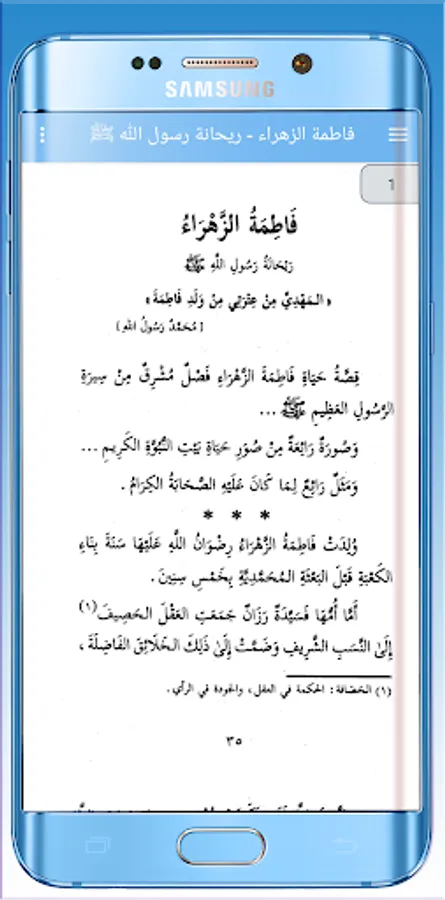 SAMSUNG
فاطمة الزهراء - ريحانة رسول الله ﷺ
1
فَاطِمَةُ الزَّهْرَاءُ
رَيْحَانَةُ رَسُولِ اللَّهِ ﷺ
« الـمَهْدِيُّ مِنْ عِتْرَتِي مِنْ وَلَدِ فَاطِمَةَ »
[ مُحَمَّدٌ رَسُولُ اللهِ ]
قِصَّةُ حَيَاةِ فَاطِمَةَ الزَّهْرَاءِ فَصْلٌ مُشْرِقٌ مِنْ سِيرَةِ
الرَّسُولِ العَظِيمِ ﷺ ...
وَصُورَةٌ رَائِعَةٌ مِنْ صُوَرِ حَيَاةِ بَيْتِ النُّبُوَّةِ الكَرِيمِ ...
وَمَثَلٌ رَائِعٌ لِمَا كَانَ عَلَيْهِ الصَّحَابَةُ الكِرَامُ .
* * *
وُلِدَتْ فَاطِمَةُ الزَّهْرَاءُ رِضْوَانُ اللَّهِ عَلَيْهَا سَنَةَ بِنَاءِ
الكَعْبَةِ قَبْلَ البَعْثَةِ المُحَمَّدِيَّةِ بِخَمْسِ سِنِينَ .
أَمَّا أُمُّهَا فَسَيِّدَةٌ رَزَانٌ جَمَعَتِ العَقْلَ الـحَصِيفَ (١)
إِلَىٰ النَّسَبِ الشَّرِيفِ وَضَمَّتْ إِلَىٰ ذَلِكَ الـخَلَائِقَ الفَاضِلَةَ ،
(١) الحَصَافة : الحكمة في العقل، والجودة في الرأي .
٣٥